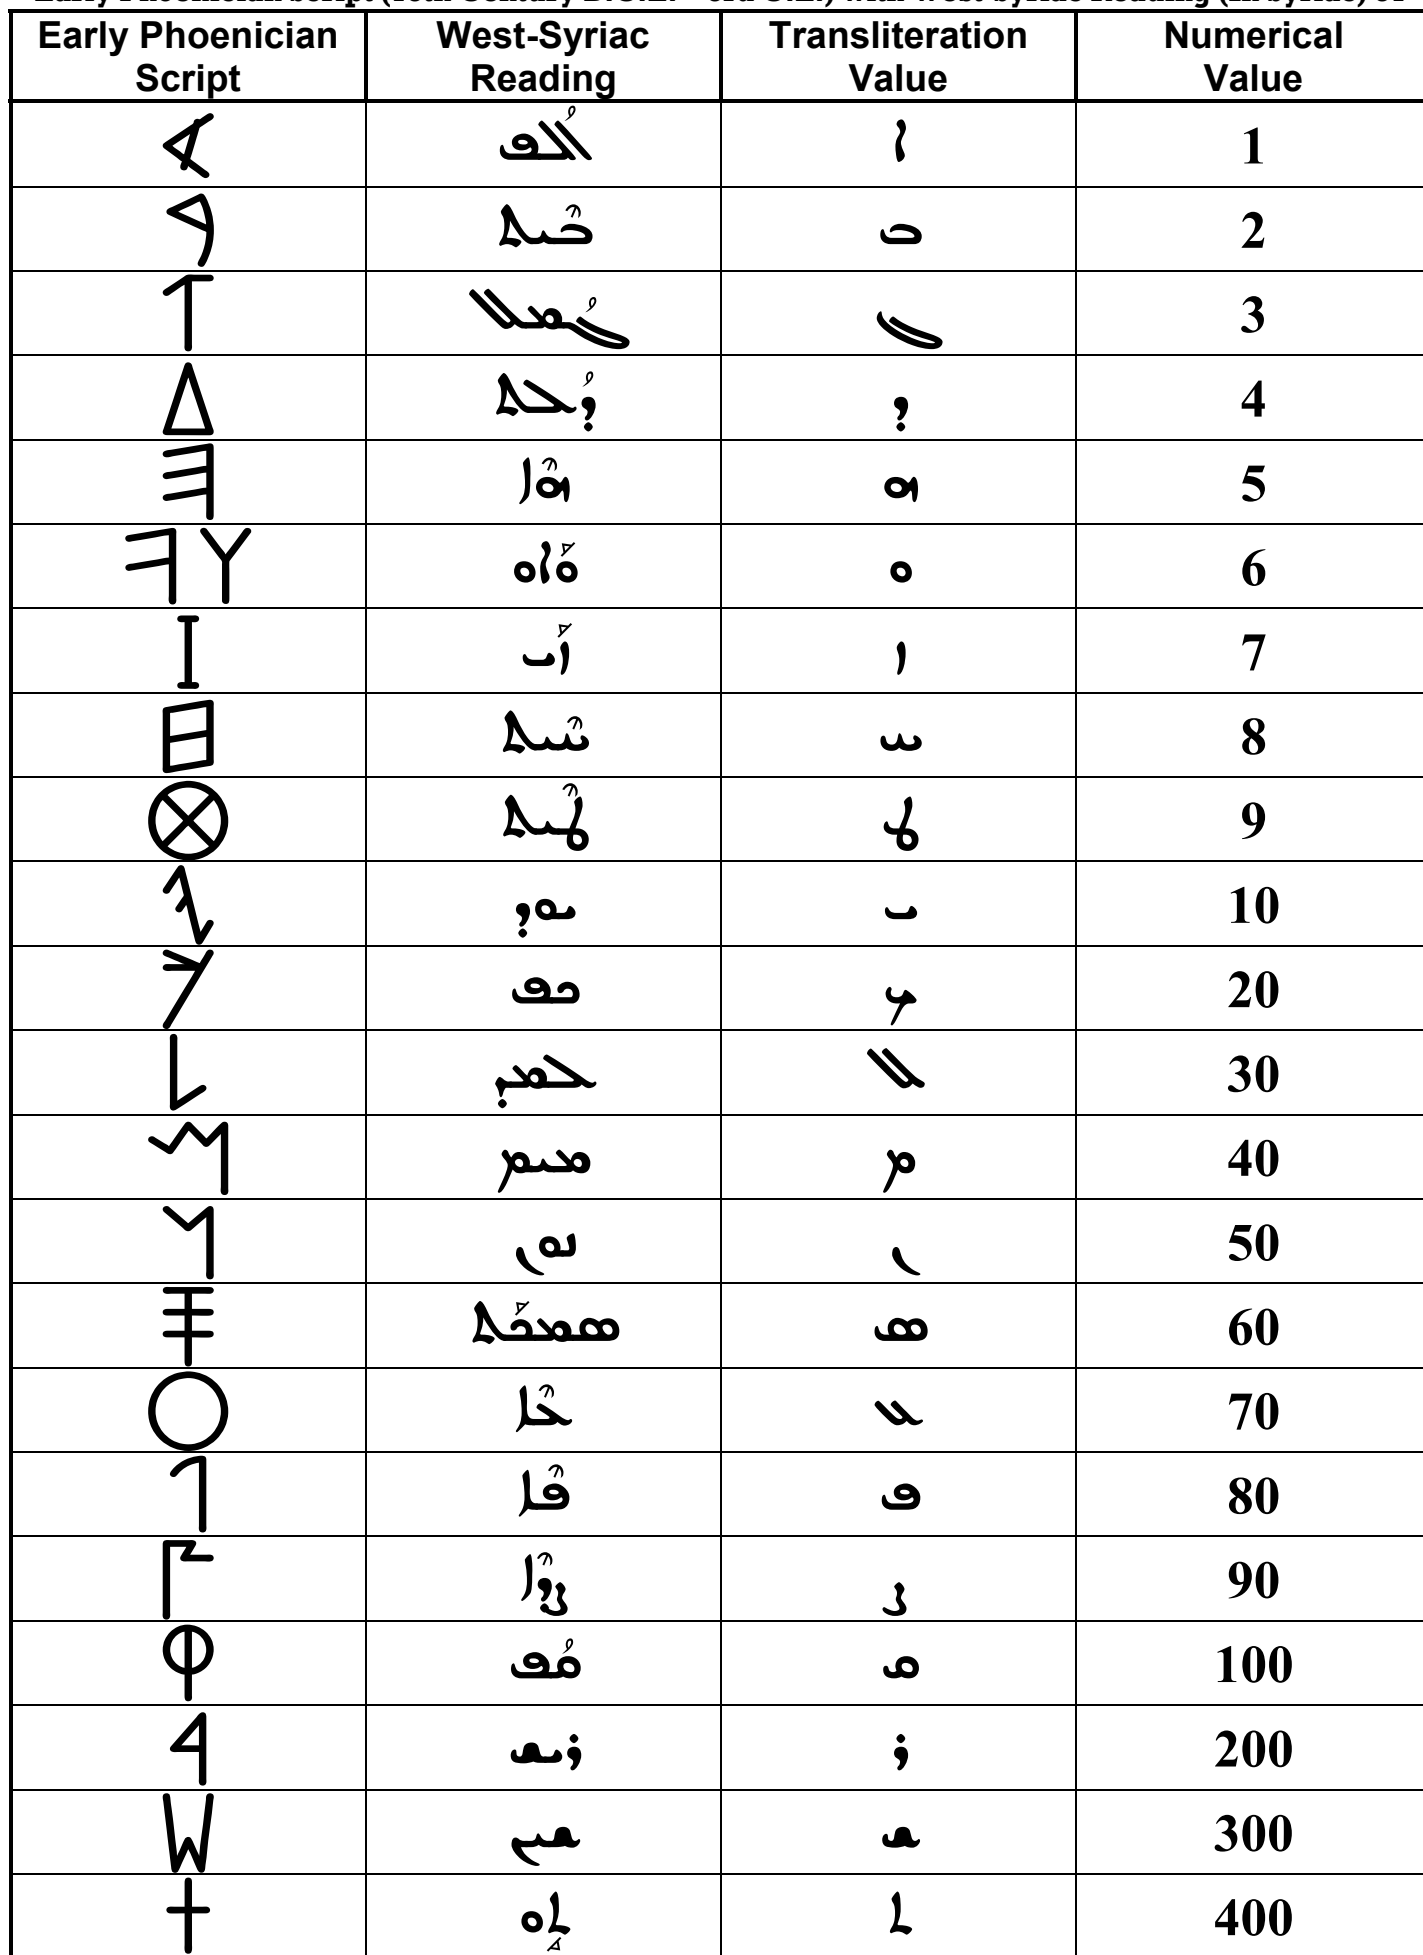 Early Phoenician Script (10th Century B.C.E. – 3rd C.E.) with West-Syriac Reading (in Syriac) of
Early Phoenician Script West-Syriac Reading Transliteration Value Numerical Value
𐤀 ܐܳܠܦ ܐ 1
𐤁 ܒܶܝܬ ܒ 2
𐤂 ܓܳܡܠ ܓ 3
𐤃 ܕܳܠܬ ܕ 4
𐤄 ܗܶܐ ܗ 5
𐤅 𐤅 ܘܰܐܘ ܘ 6
𐤆 ܙܰܝ ܙ 7
𐤇 ܚܶܝܬ ܚ 8
𐤈 ܛܶܝܬ ܛ 9
𐤉 ܝܘܕ ܝ 10
𐤊 ܟܦ ܟ 20
𐤋 ܠܡܕ ܠ 30
𐤌 ܡܝܡ ܡ 40
𐤍 ܢܘܢ ܢ 50
𐤎 ܣܡܟܰܬ ܣ 60
𐤏 ܥܶܐ ܥ 70
𐤐 ܦܶܐ ܦ 80
𐤑 ܨܕܶܐ ܨ 90
𐤒 ܩܳܦ ܩ 100
𐤓 ܪܝܫ ܪ 200
𐤔 ܫܝܢ ܫ 300
𐤕 ܬܱܘ ܬ 400